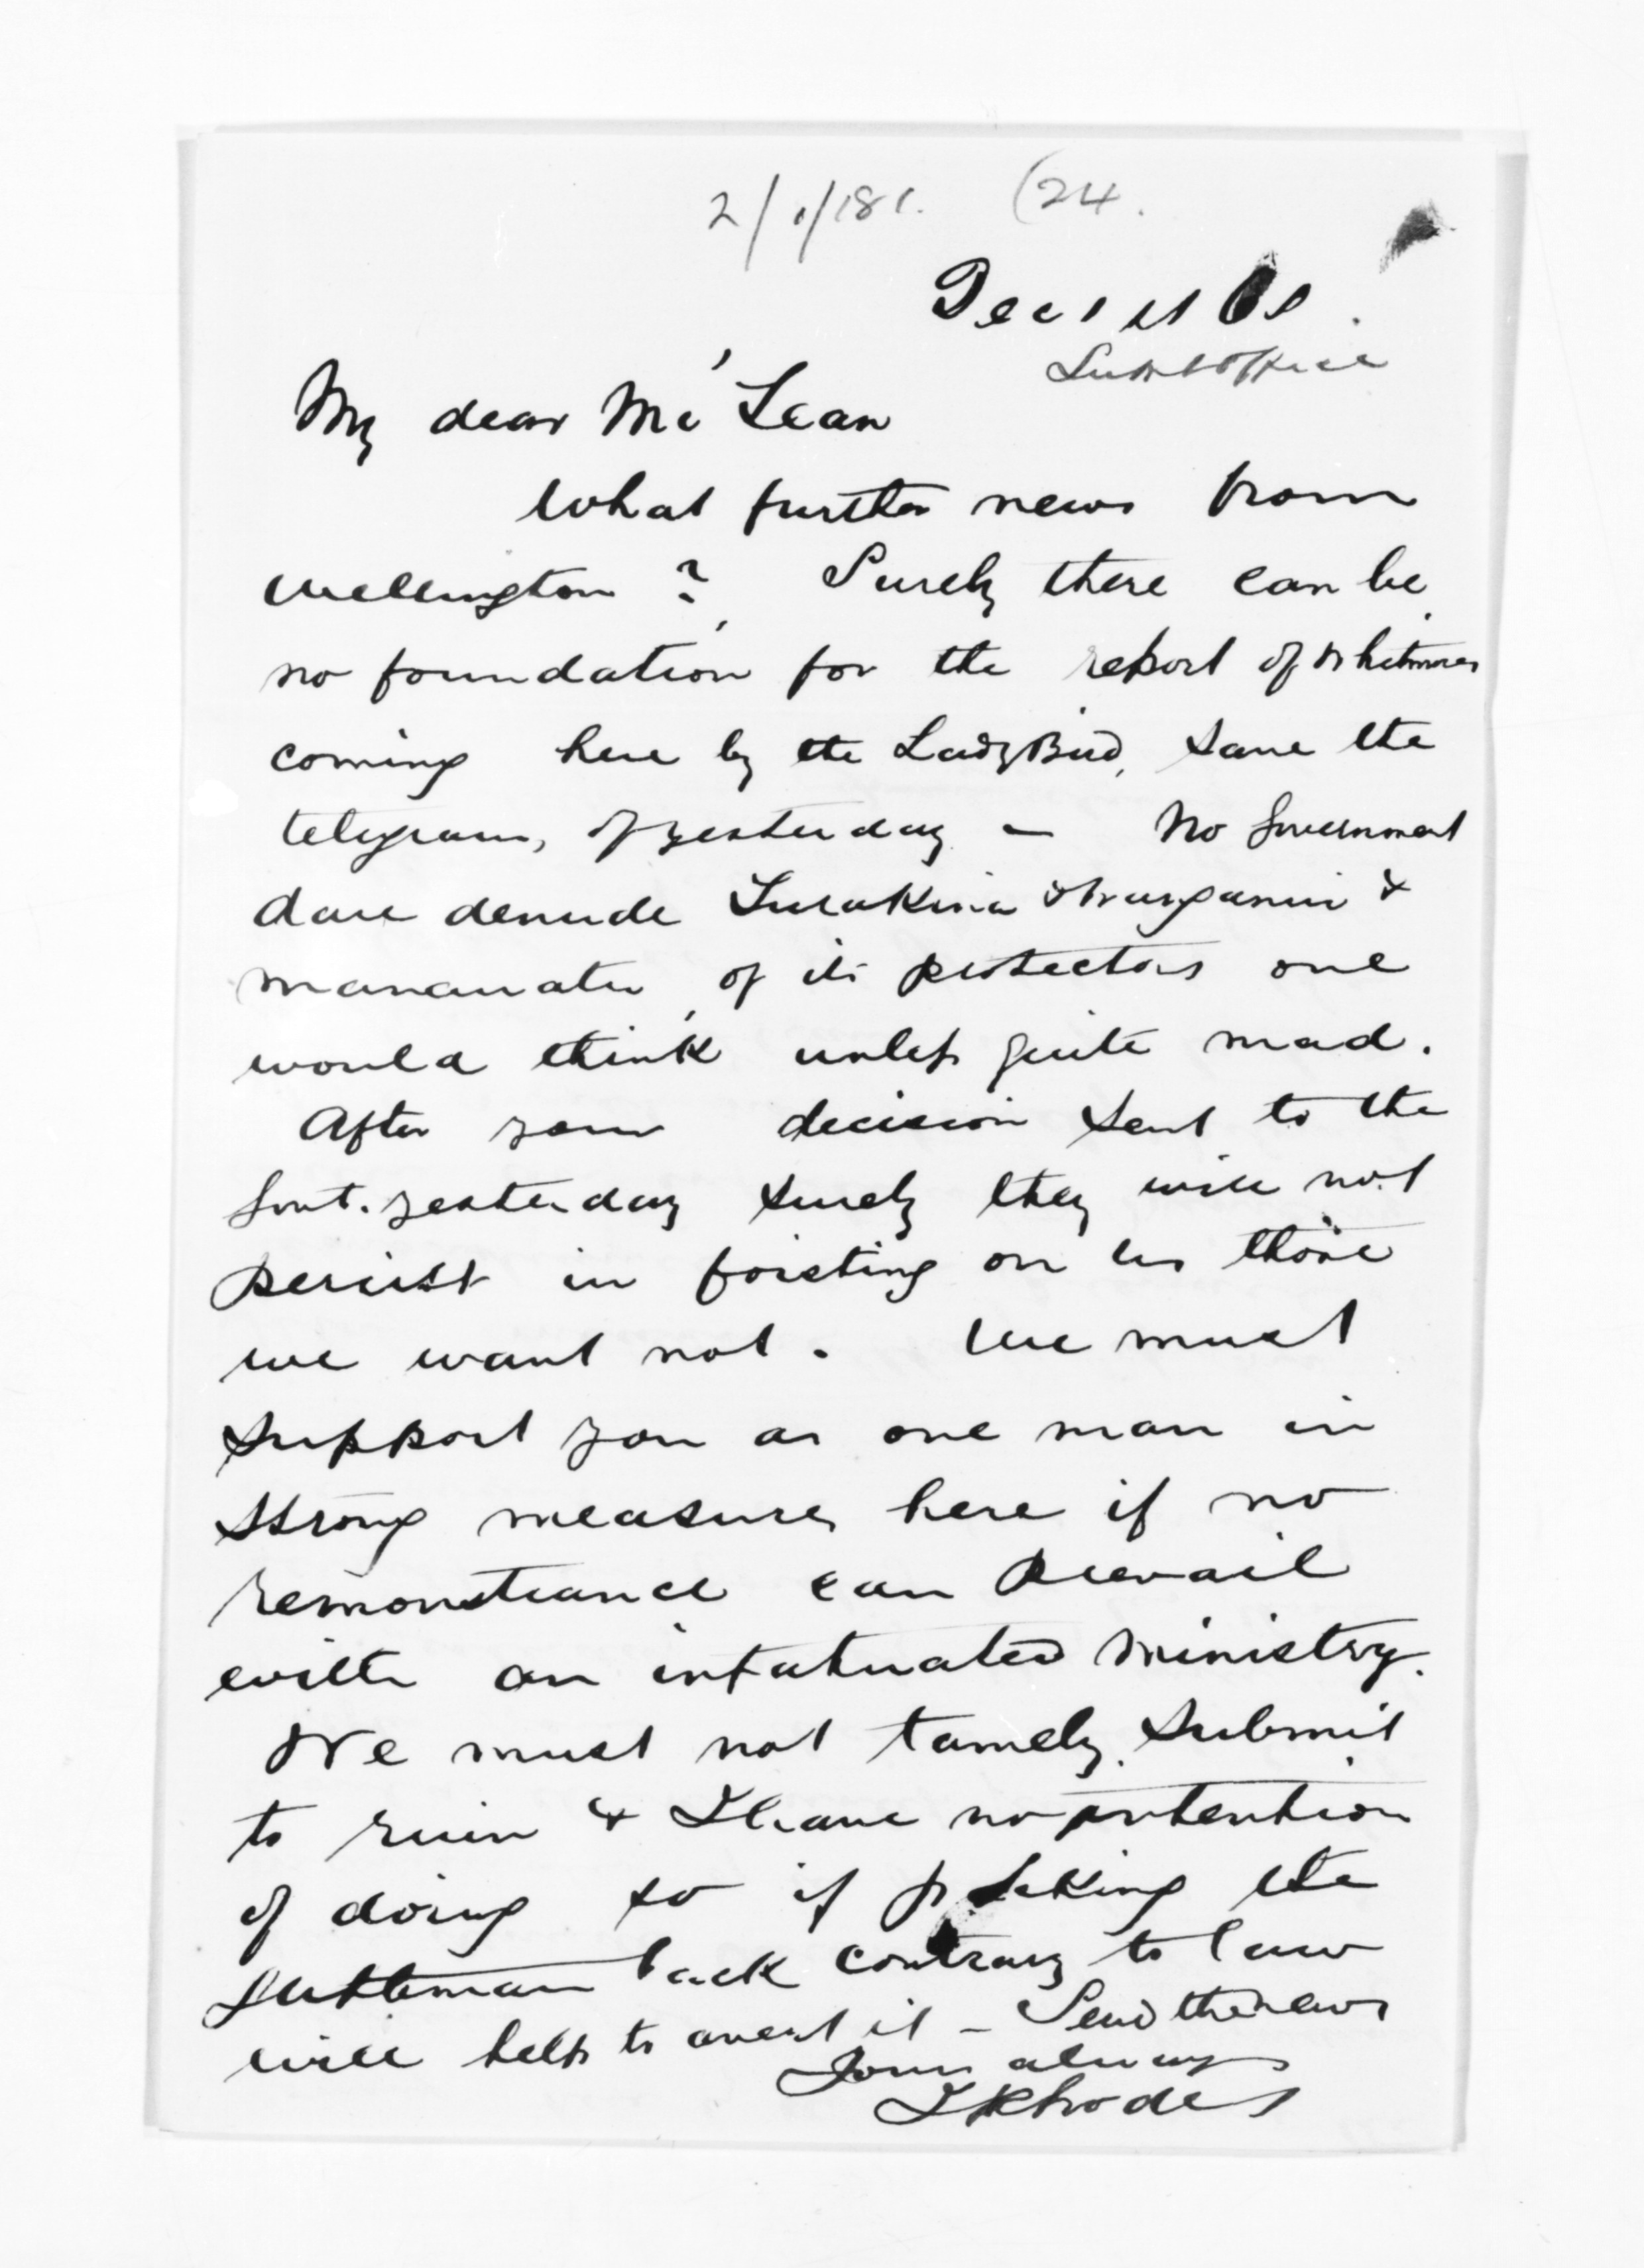 2/1/181. (24.
Dec 1st 68.
Supt Office
My dear McLean
What further news from
Wellington? Surely there can be
no foundation for the report of Whitmores
coming here by the LadyBird, save the
telegram, of yesterday — No Government
dare denude Turakina Wanganui &
Manawatu of its protectors one
would think unless quite mad.
After your decision sent to the
Govt. yesterday surely they will not
persist in foisting on us those
we want not. We must
support you as one man in
strong measures here if no
remonstrance can prevail
with an infatuated Ministry.
We must not tamely submit
to ruin & I have no intention
of doing so if the
back contrary to law
will help to avert it — Send the news
Yours always
J Rhodes